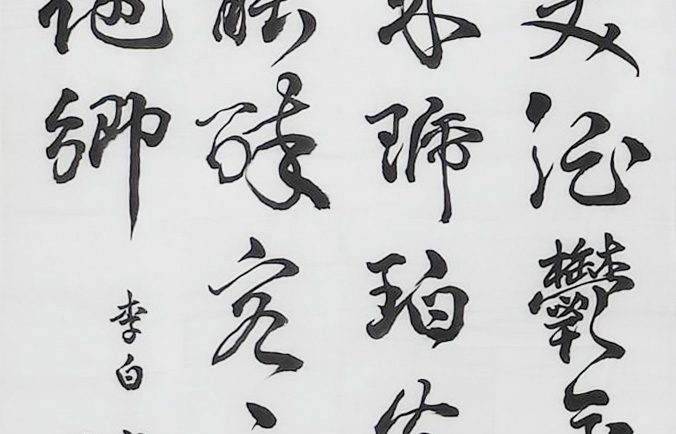 美酒鬱金
來琥珀光
能醉客
他鄉
李白